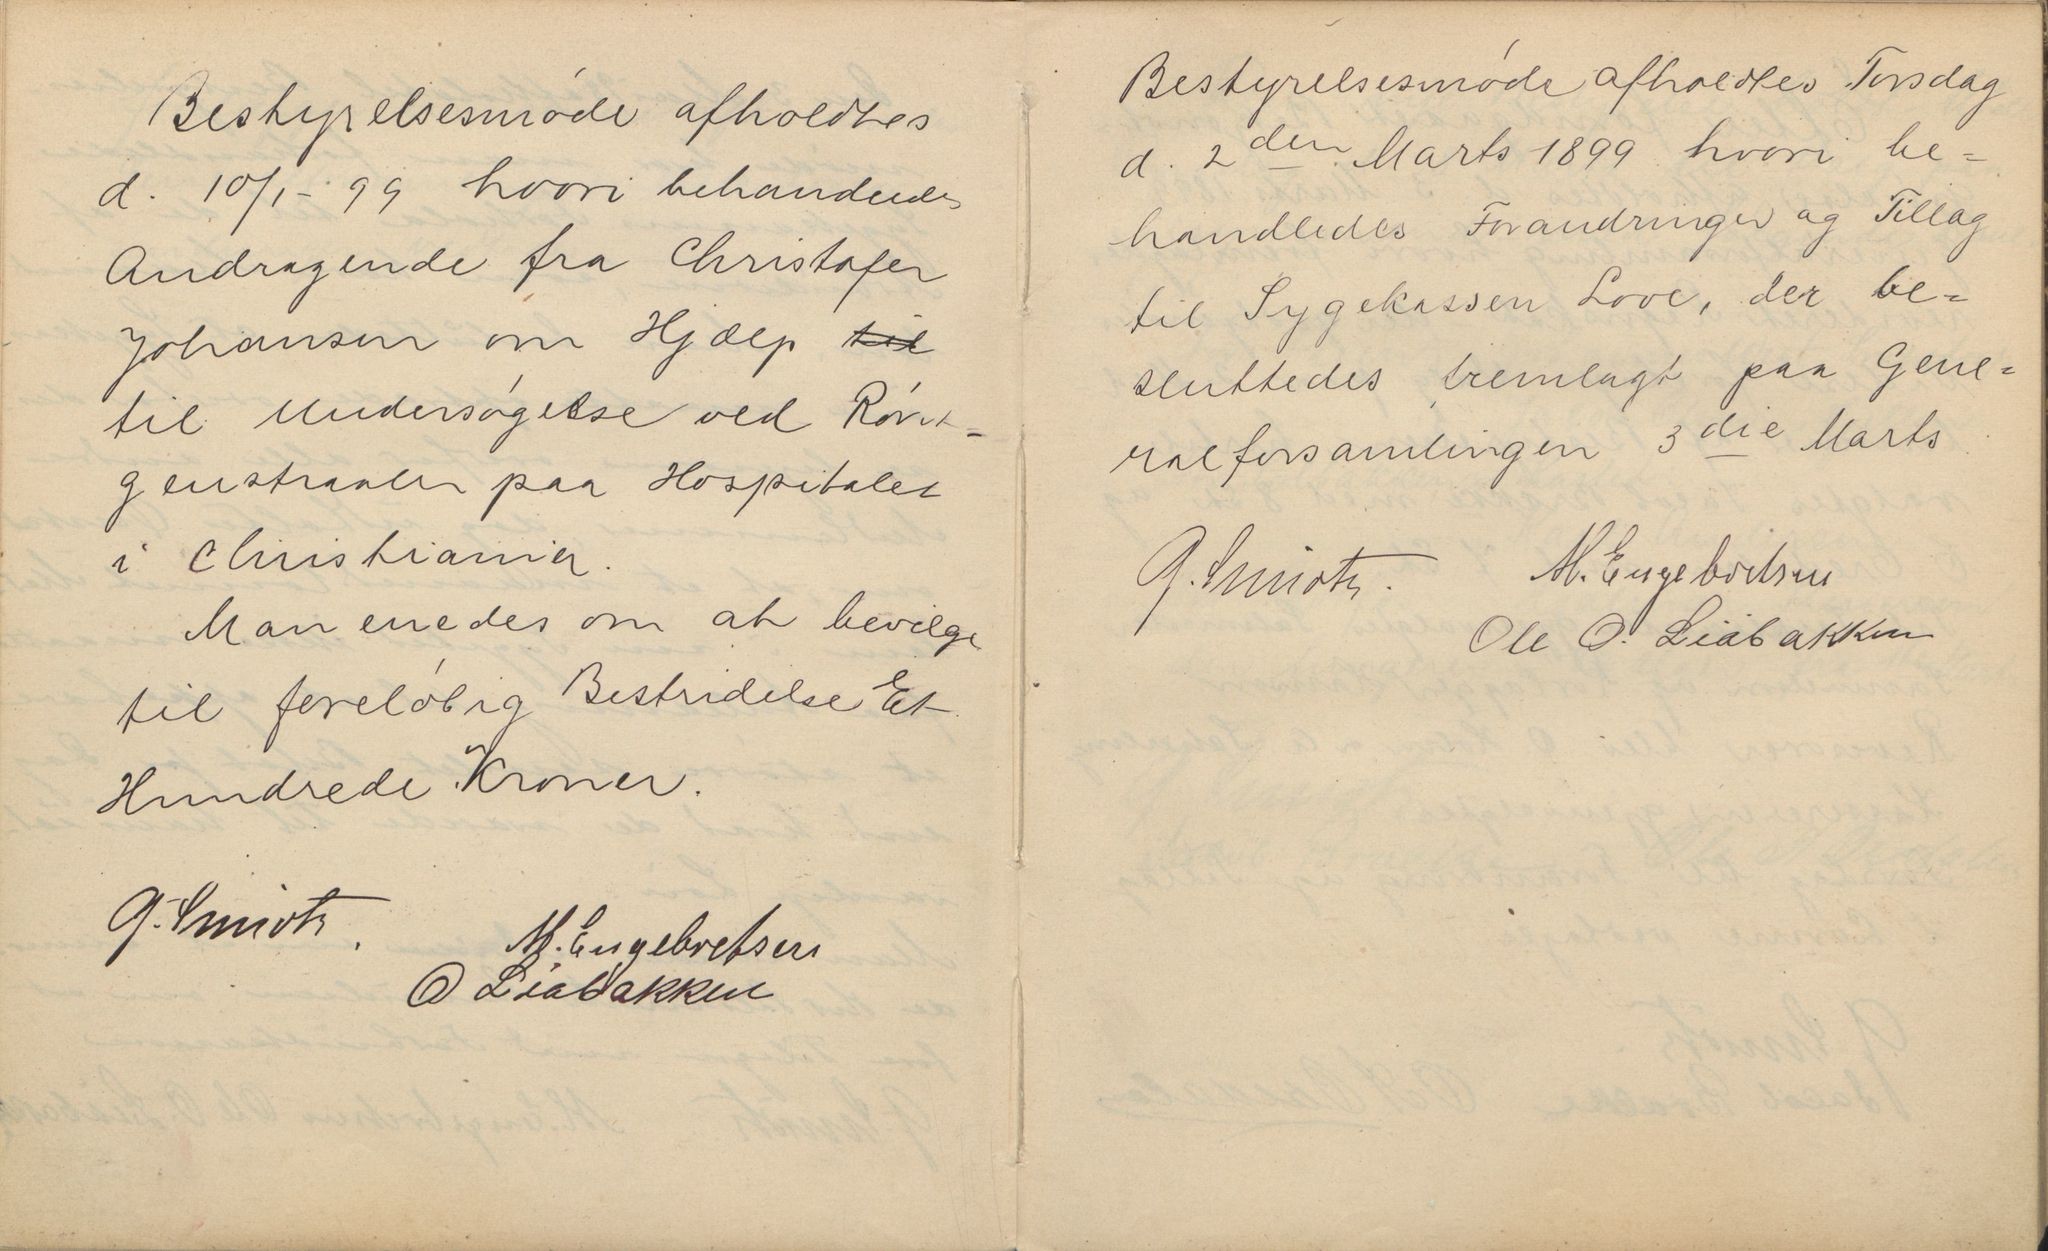 Bestyrelsesmöde afholdtes
d. 10/1-99 hvori behandledes
Andragende fra Christofer
Johansen om Hjælp til
til Undersögelse ved Rönt=
genstraaler paa Hospitalet
i Christiania.
Man enedes om at bevilge
til foreløbig Bestridelse Et
Hundrede Kroner.
G. Smith.
M. Engebretsen
O Liabakken
Bestyrelsesmöde afholdtes Torsdag
d. 2den Marts 1899 hvori be=
handledes Forandringer og Tillæg
til Sygekassen Love, der be=
sluttedes fremlagt paa Gene=
ralforsamlingen 3die Marts
G. Smith.
M. Engebretsen
Ole O. Liabakken